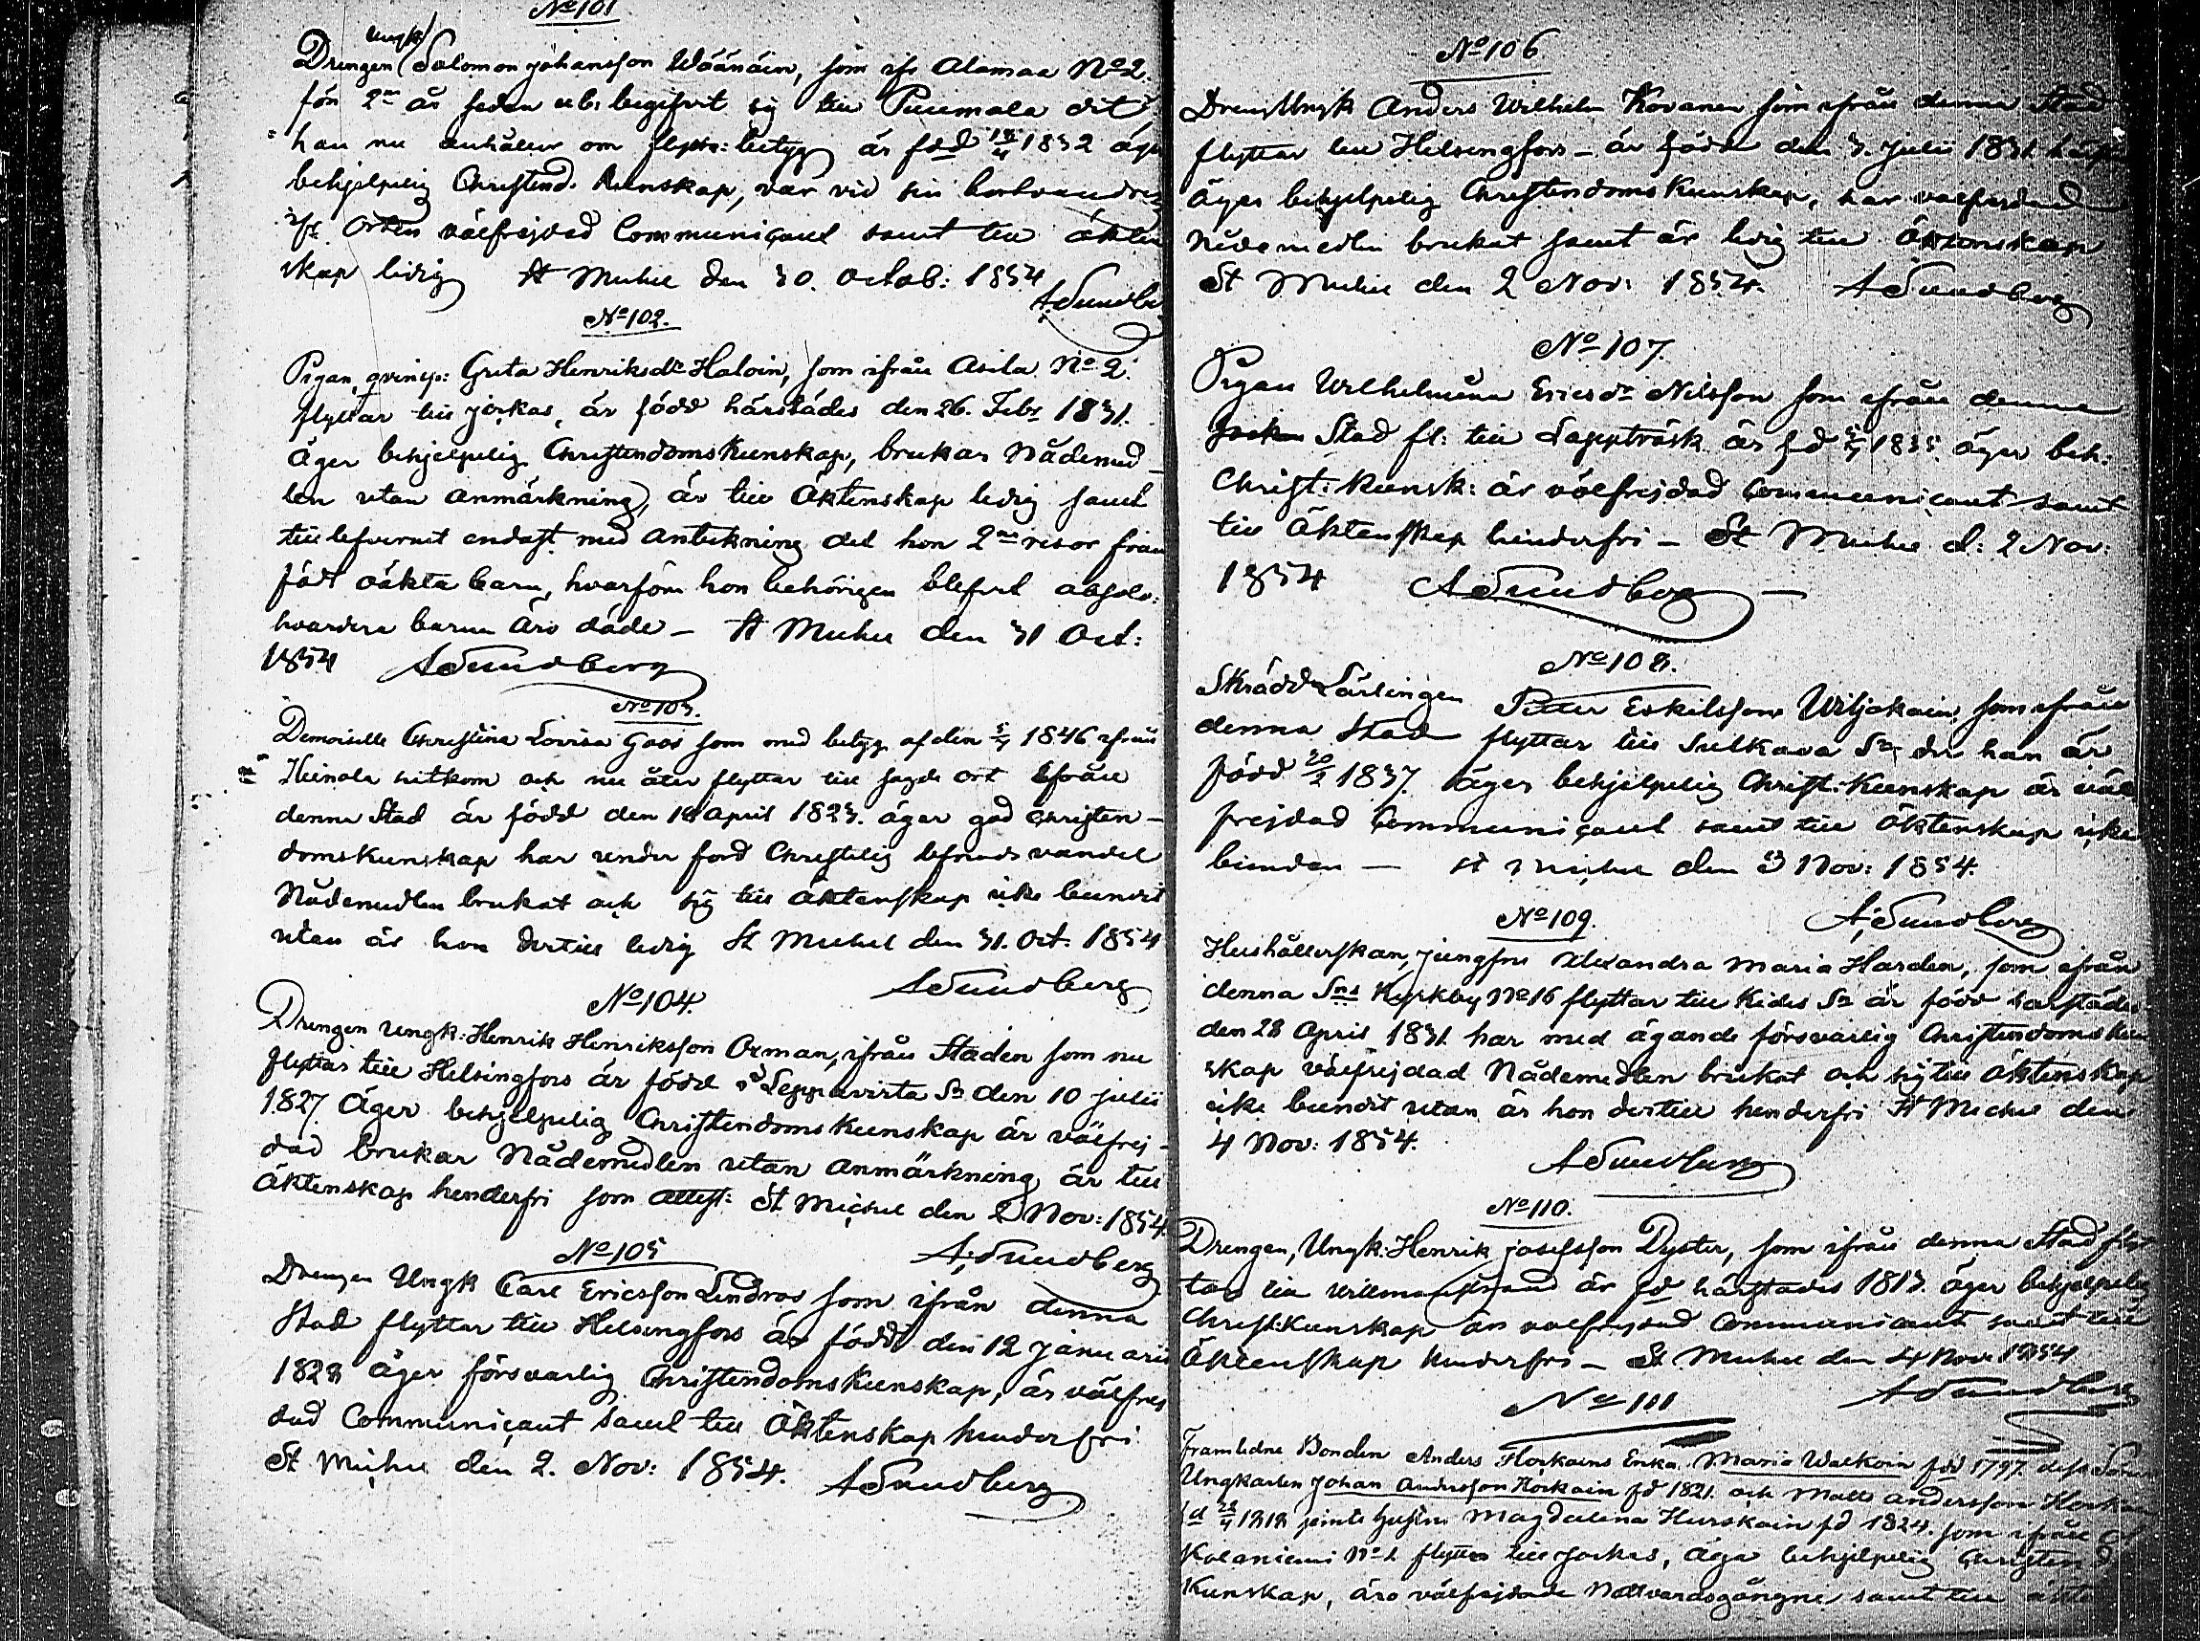 No 101
Drengen Ungk: Salomon Johansson Wäänäin, som ifr Alamaa No 2.
för 2ne år sedan begifvit sig till Puumala dit
han nu anhåller om flyttn: betyg är född 1832 äger
behjelpelig Christend: kunskap, var vid sin bortvandring
ifr. Orten välfrejdad Communicant samt till äkten
skap ledig St Michel den 30. Octob: 1854
A. Sundberg
No 102.
Pigan, qvinsp: Greta Henriksdr Haloin, som ifrån Asila No 2.
flyttar till Jockas, är född härstädes den 26. Febr 1831.
Äger behjelpelig Christendomskunskap, brukar Nådemed-
len utan anmärkning, är till Äktenskap ledig samt
till lefvernet endast med anteckning det hon 2ne resor fram
födt oäkta barn, hvarföre hon behörigen blifvit absolv:
hvardera barnen äro döde – St Michel den 31 Oct:
1854 A Sundberg
No 103.
Demoiselle Christina Lovisa Goos som med betyg af den 1846 ifrån
Heinola hitkom och nu åter flyttar till sagde ort ifrån
denna Stad är född den April 1823. äger god Christen-
domskunskap har under förd Christelig lefnads vandel
Nådemedlen brukat och sig till äktenskap icke bundit
utan är hon dertill ledig St Michel den 31. Oct. 1854
A Sundberg
No 104.
Drengen Ungk: Henrik Henriksson Orman, ifrån Staden som nu
flyttar till Helsingfors är född i Leppävirta Sn den 10 Julii
1827. Äger behjelpelig Christendomskunskap är välfrej-
dad brukar Nådemedlen utan anmärkning är till
Äktenskap henderfri som attest: St Michel den 2 Nov: 1854.
A. Sundberg
No 105
Drengen Ungk Carl Ericsson Lindros som ifrån denna
Stad flyttar till Helsingfors är född den 12 Januarii
1828 äger försvarlig Christendomskunskap, är välfrej
dad Communicant samt till Äktenskap hinderfri
St Michel den 2. Nov: 1854. A Sundberg
No 106
Dreng Ungk Anders Wilhelm Kovanen som ifrån denna Stad
flyttar till Helsingfors – är född den 3. Julii 1831.
äger behjelpelig Christendomskunskap, har välfrejdad
Nådemedlen brukat samt är ledig till Äktenskap
St Michel den 2 Nov: 1854. A Sundberg
No 107.
Pigan Wilhelmina Ericsdr Nilsson som ifrån denna
Stad fl: till Lappträsk är fd 1835. äger beh:
Christ: kunsk: är välfrejdad Communicant samt
till Äktenskap hinderfri – St Michel d: 2 Nov:
1854 A Sundberg
No 108.
Skrädd Lärlingen Petter Eskilsson Wiljakain, som ifrån
denna Stad flyttar till Sulkava Sn, der han är
född 20/2 1837. äger behjelpelig Christ: kunskap är väl
frejdad Communicant samt till äktenskap icke
bunden – St Michel den 3 Nov: 1854.
A. Sundberg
No 109.
Hushållerskan, Jungfru Alexandra Maria Harden, som ifrån
denna Sns Kyrkby No 16 flyttar till Kides Sn är född härstädes
den 28 April 1831. har med ägande försvarlig Christendomskun
skap välfrejdad Nådemedlen brukat och sig till Äktenskap
icke bundit utan är hon dertill henderfri St Michel den
4 Nov: 1854.
A Sundberg
No 110.
Drengen, Ungk: Henrik Josefsson Dyster, som ifrån denna Stad flyt
tar till Willmanstrand är fd härstädes 1813. äger behjelpelig
Christ: kunskap är välfrejdad Communicant samt till
Äktenskap hinderfri – St Michel den 4 Nov: 1854
A Sundberg
No 111
Framledne Bonden Anders Horkains Enka Maria Walkoin född 1797. dess Söner
Ungkarlen Johan Andersson Horkain fd 1821. och Matts Andersson Horkain
fd 1818 jemte hustru Magdalena Hurskain fd 1824. som ifrån
Kolaniemi No 1 flytta till Jockas, äga behjelpelig Christend
Kunskap, äro välfrejdade Nattvardsgångne samt till äkte